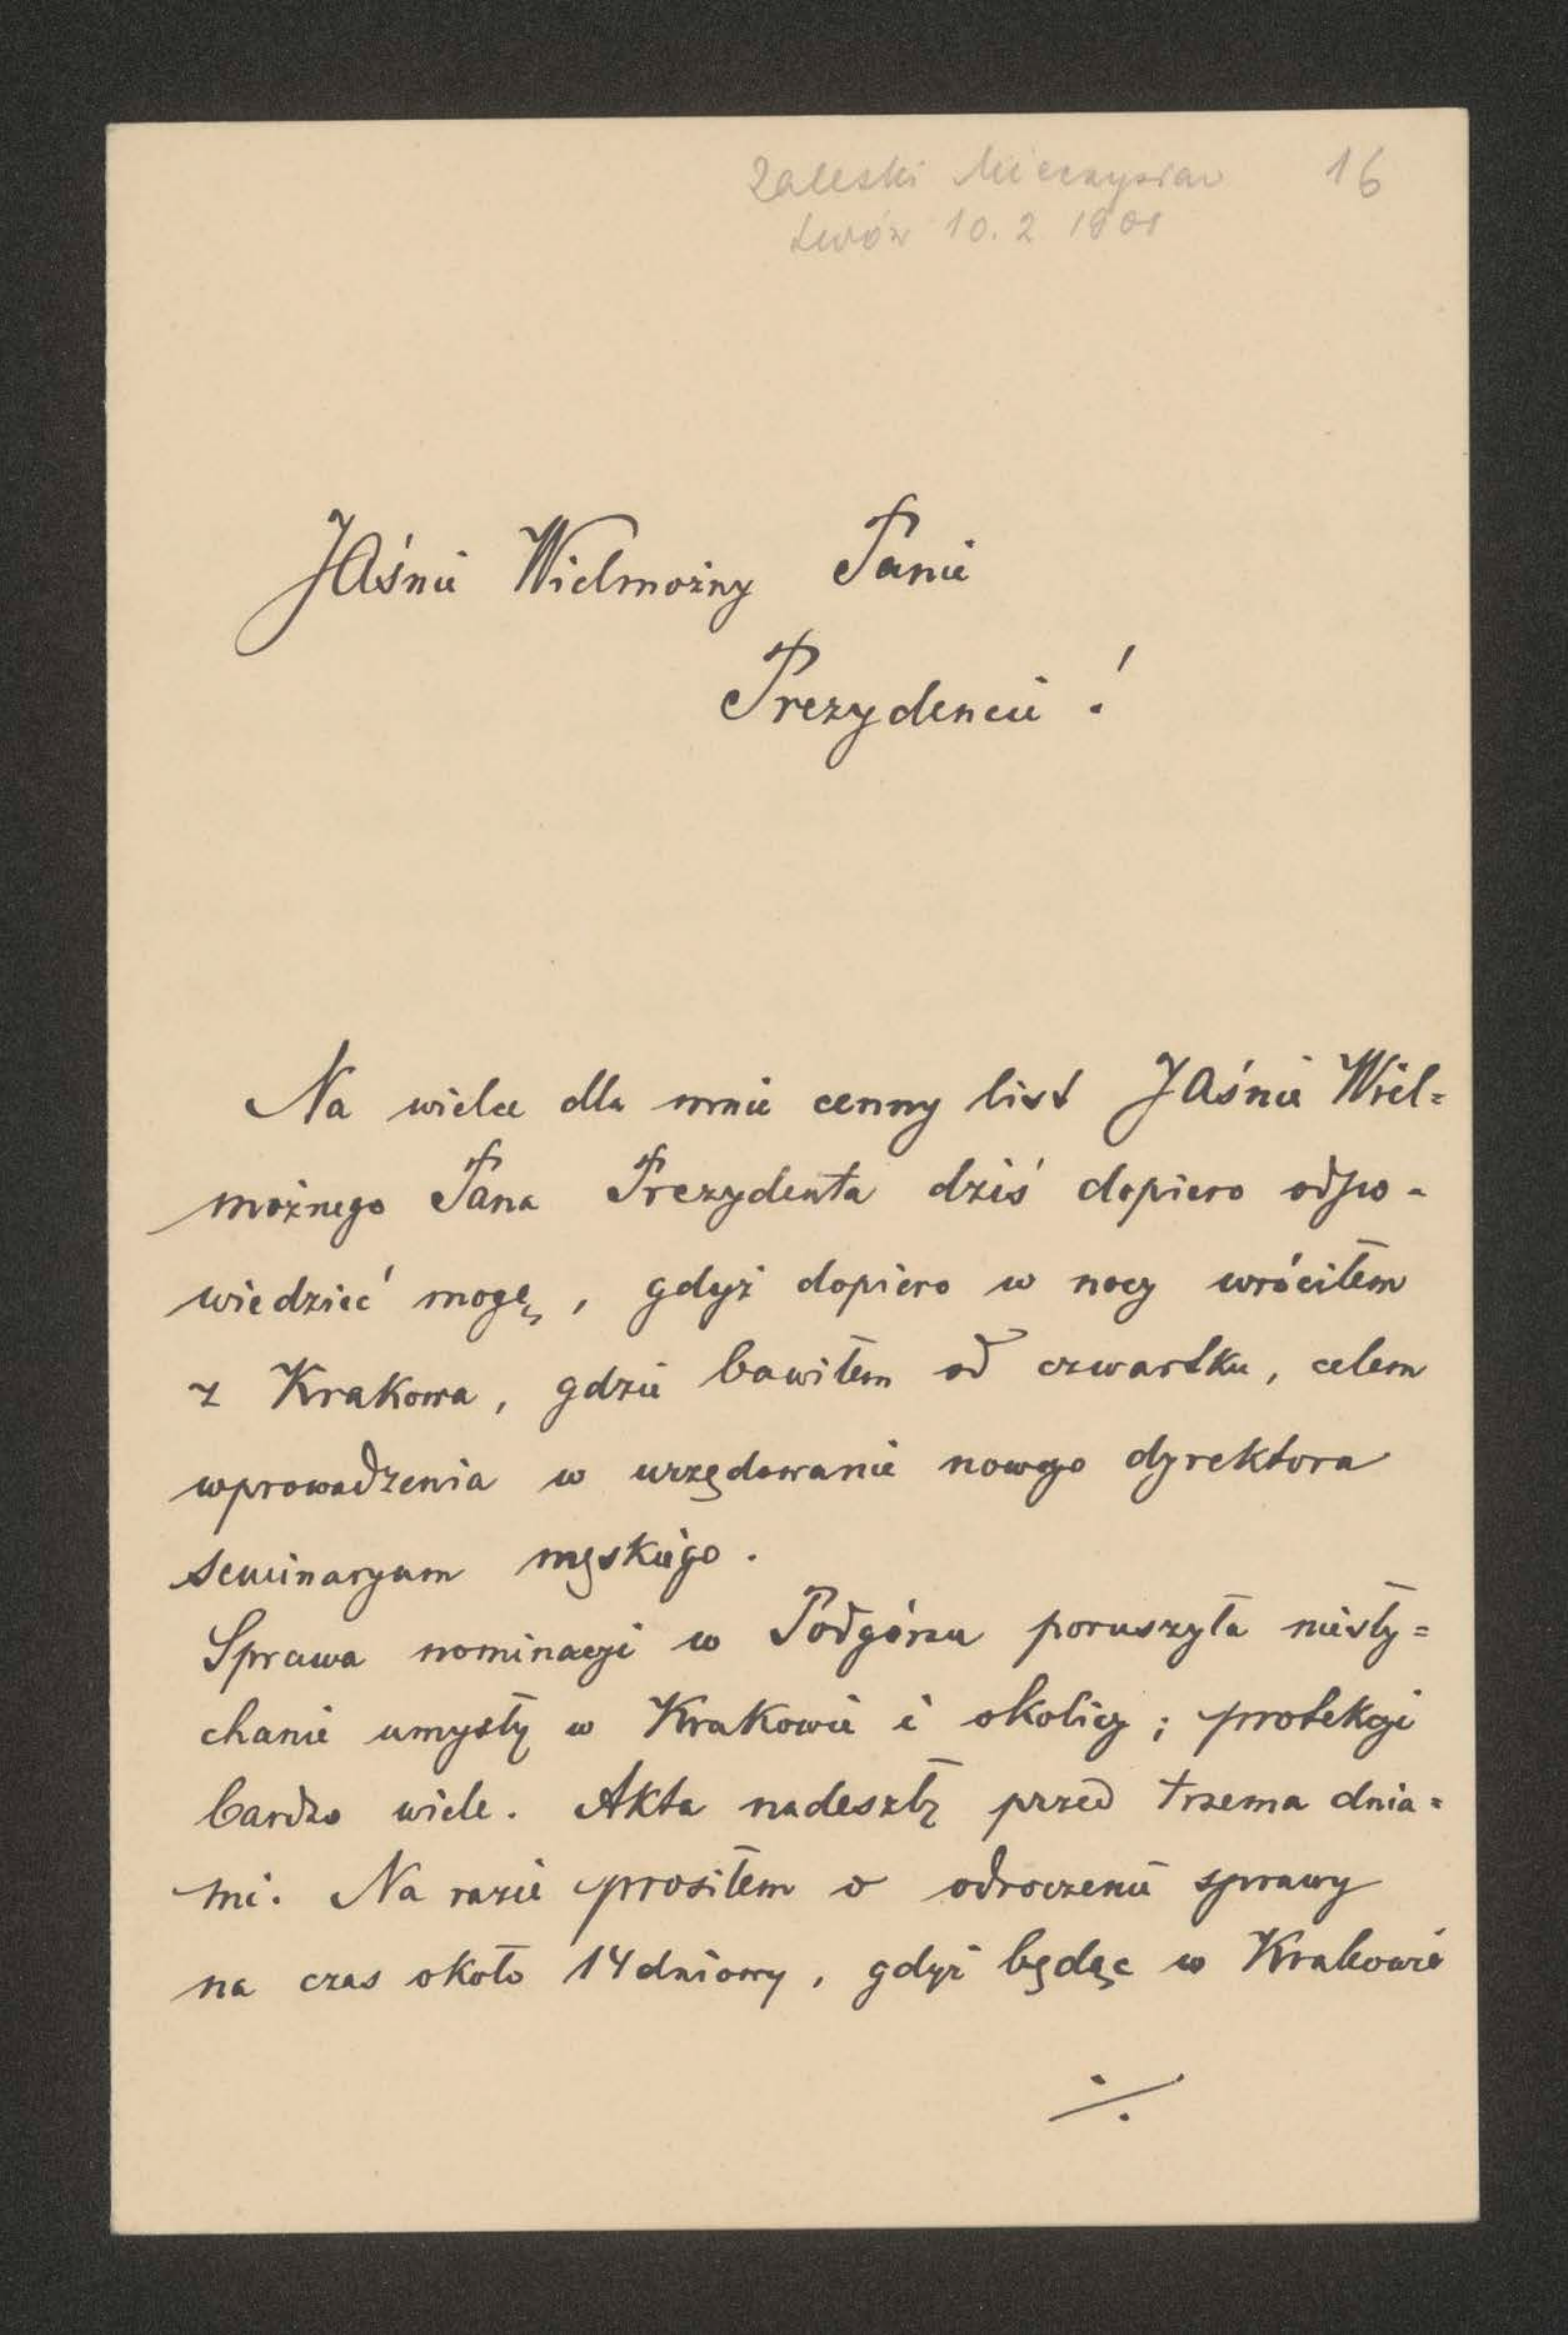 Zaleski Mieczysław 16
Lwów 10. 2 1901
JAśnie Wielmożny Panie
Prezydencie!
Na wielce dla mnie cenny list JAśnie Wiel=
możnego Pana Prezydenta dziś dopiero odpo-
wiedzieć mogę, gdyż dopiero w nocy wróciłem
z Krakowa, gdzie bawiłem od czwartku, celem
wprowadzenia w urzędowanie nowego dyrektora
seminaryum męskiego.
Sprawa nominacyi w Podgórzu poruszyła niesły=
chanie umysły w Krakowie i okolicy; protekcyi
bardzo wiele. Akta nadeszły przed trzema dnia=
mi. Na razie prosiłem o odroczenie sprawy
na czas około 14dniowy, gdyż będąc w Krakowie
./.